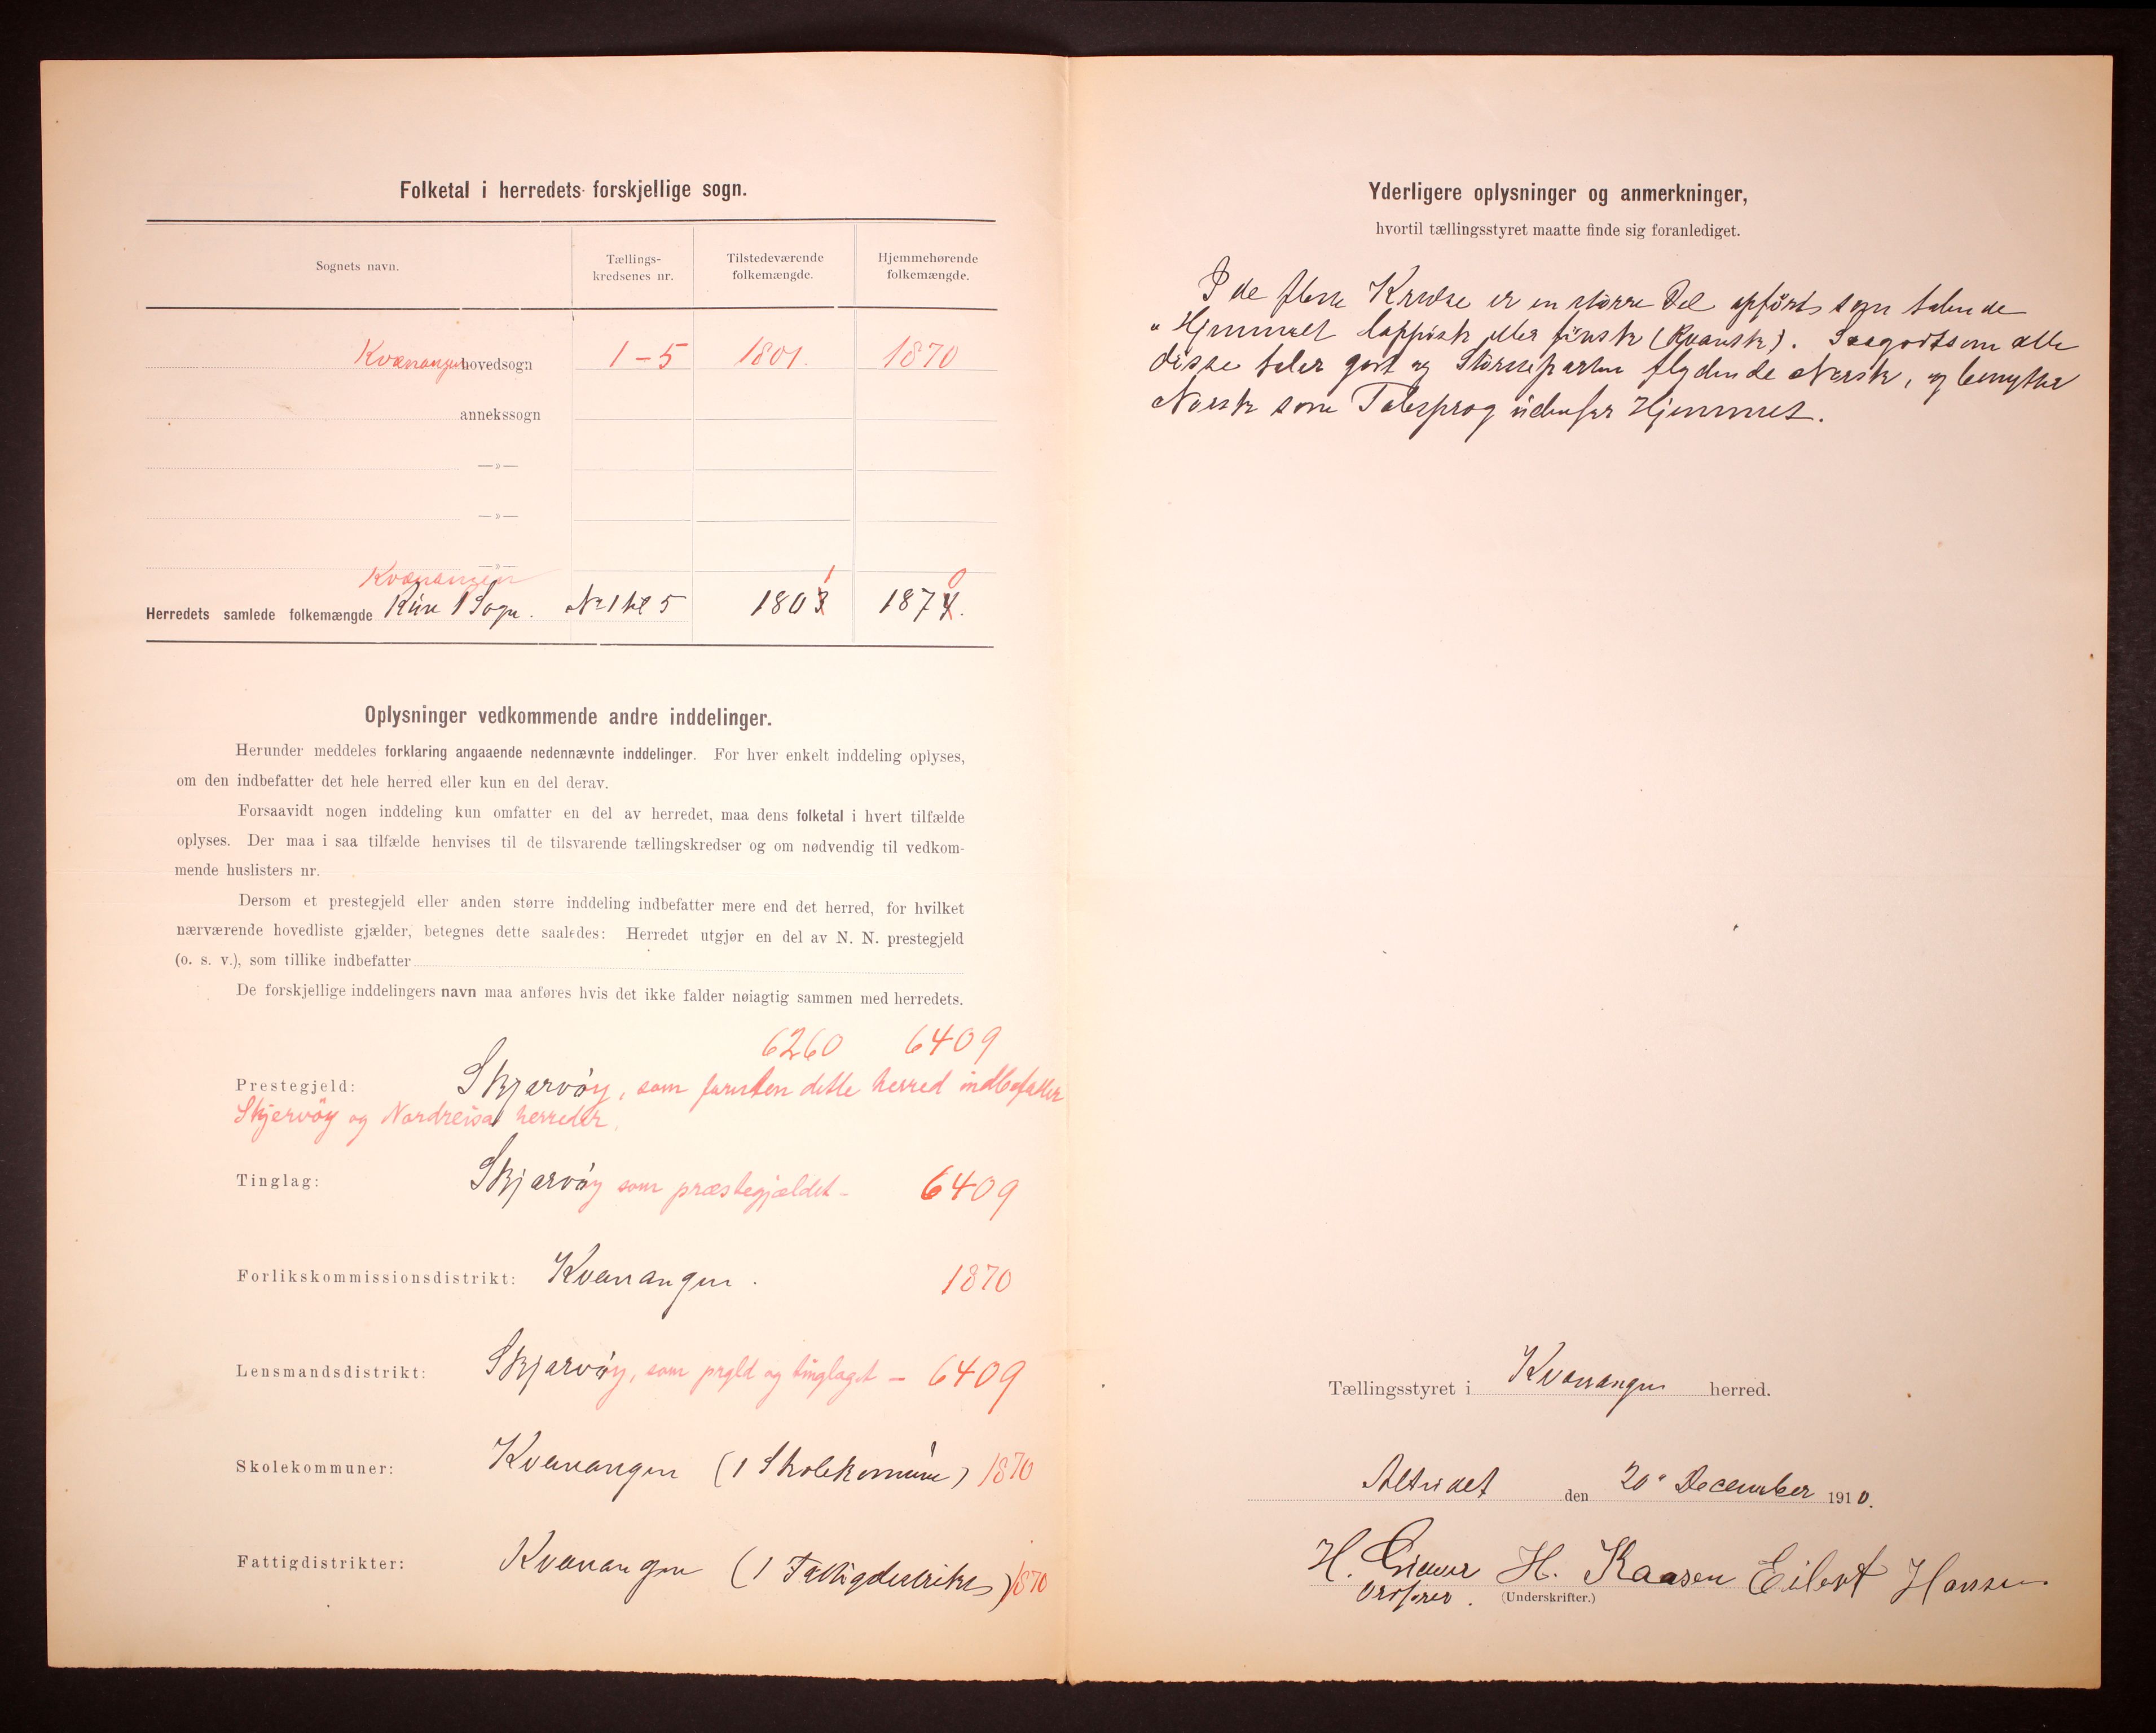 Folketal i herredets forskjellige sogn.
Sognets navn.
Tællings-
kredsenes nr.
Tilstedeværende
folkemængde.
Hjemmehørende
folkemængde.
Kvænangen hovedsogn 1-5 1801. 1870
annekssogn
—»—
—»—
—»—
Kvænangen
Herredets samlede folkemængde Kun 1 Sogn. No 1 til 5 1803 1 1874. 0
Oplysninger vedkommende andre inddelinger.
Herunder meddeles forklaring angaaende nedennævnte inddelinger. For hver enkelt inddeling oplyses,
om den indbefatter det hele herred eller kun en del derav.
Forsaavidt nogen inddeling kun omfatter en del av herredet, maa dens folketal i hvert tilfælde
oplyses. Der maa i saa tilfælde henvises til de tilsvarende tællingskredser og om nødvendig til vedkom-
mende huslisters nr.
Dersom et prestegjeld eller anden større inddeling indbefatter mere end det herred, for hvilket
nærværende hovedliste gjælder, betegnes dette saaledes: Herredet utgjør en del av N. N. prestegjeld
(o. s. v.), som tillike indbefatter
De forskjellige inddelingers navn maa anføres hvis det ikke falder nøiagtig sammen med herredets.
6260 6409
Prestegjeld: Skjærvöy, som foruden dette herred indbefatter
Skjervöy og Nordreisa herreder.
Tinglag: Skjærvöy som præstegjældet - 6409
Forlikskommissionsdistrikt: Kvænangen. 1870
Lensmandsdistrikt: Skjærvöy, som prgld og tinglaget - 6409
Skolekommuner: Kvænangen (1 Skolekomune) 1870
Fattigdistrikter: Kvænangen (1 Fattigdistrikt) 1870
Yderligere oplysninger og anmerkninger,
hvortil tællingsstyret maatte finde sig foranlediget.
I de fleste Kredse er en större Del opfört som talende
"Hjemmet lappisk eller finsk (Kvænsk). Saagodtsom alle
disse taler godt og Störsteparten flydende Norsk, og benytter
Norsk som Talesprog udenfor Hjemmet.
Tællingsstyret i Kvænangen herred.
Alteidet den 20" December 1910.
H. Giæver H. Kaasen Eilert Hansen
Ordfører.
(Underskrifter.)